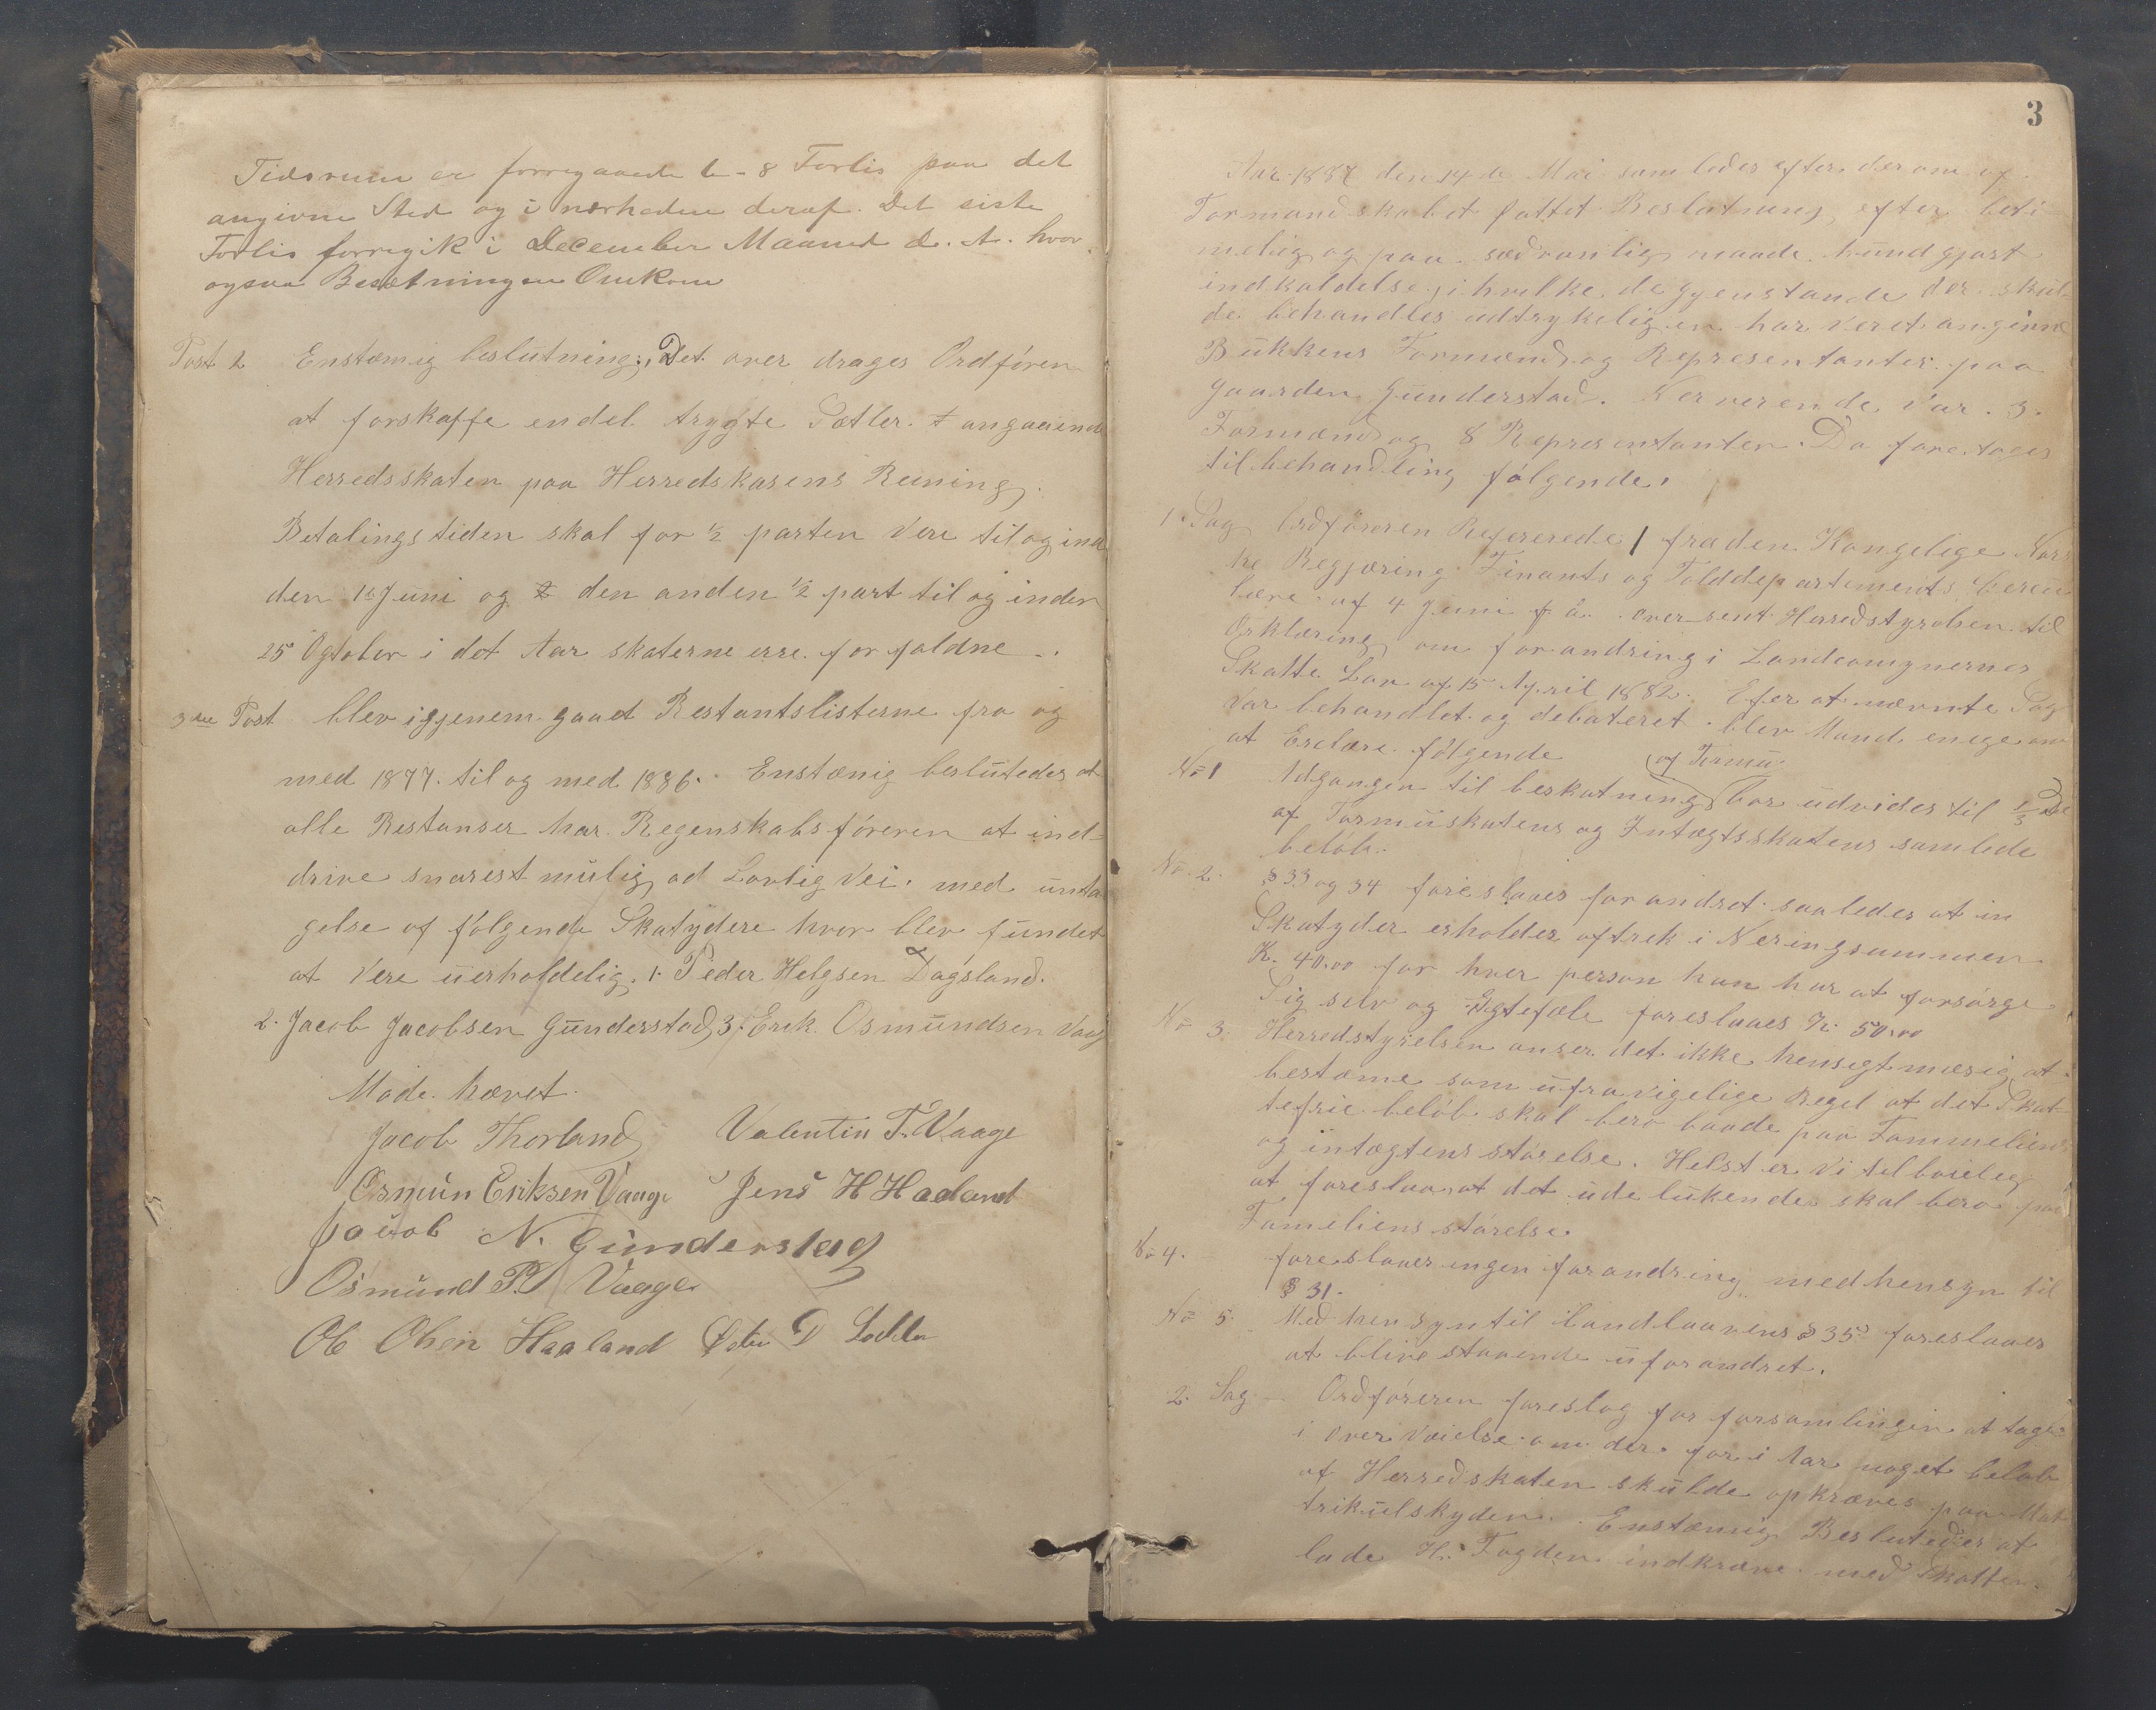 Tidsrum er forregaaede 6-8 Forlis paa det
angivne Sted og i nærheden deraf. Det siste
Forlis forregik i December Maaned d. A. hvor
ogsaa Besetningen Omkom
Post 2 Enstæmig beslutning: Det over drages Ordføren
at forskaffe endel trygte Sætler angaaende
Herredsskaten paa Herredskasens Reining.
Betalingstiden skal for ½ parten Vere til og inden
den 1ste Juni og den anden ½ part til og inden
25 Ogtober i det Aar skaterne erre forfaldne.
3die Post blev igjenem gaaet Restantslisterne fra og
med 1877 til og med 1886. Enstænig beslutedes at
alle Restanser har Regenskabsføreren at ind-
drive snarest mulig ad Lovlig Vei. med unta
gelse af følgende Skatydere hvor blev fundet
at Vere uerholdelig. 1. Peder Helgsen Dagsland.
2. Jacob Jacobsen Gunderstad, 3. Erik Osmundsen Vaag
Møde hævet.
Jacob Thorland Valentin T. Vaage
Osmun Eriksen Vaage Jens H Haaland
Jacob N. Gunderstad
Osmund P. Vaage
Ole Olsen Haaland Peder D
3
Aar 1887 den 14de Mai samledes efter derom af
Formandskabet fattet Beslutning, efter beti-
melig og paa sædvanlig maade kundgjort
indkaldelse, i hvilke de gjenstande der skul-
de behandles udtrykeligen har veret angivne
Bukkens Formænd og Representanter paa
Gaarden Gunderstad. Nerverende Var 3.
Formænd og 8 Representanter. Da foretages
til behandling følgende.
1. Sag Ordføreren Refererede / fra den Kongelige Nors
ke Regjæring Finants og Tolddepartements
af 4 Juni f. a. oversent Herredstyrelsen til
Erklæring om forandring i Landcomynernes
Skatte Lov af 15 April 1882. Efer at nævnte Sag
Var behandlet og debateret blev Mand enege om
at Erclære følgende
No 1 Adgangen til beskatning af Formu bør udvides til ⅓ Del
af Formuskatens og Intægtsskatens samlede
beløb.
No. 2. § 33 og 34 foreslaaes forandret saaledes at en
Skatyder erholder aftrek i Neringsummen
K. 40.00 for hver person han har at forsørge.
Sig selv og Egtefæle foreslaaes K. 50.00
No 3. Herredstyrelsen anser det ikke hensegtmæsig at
bestæme som ufravigelige Regel at det Skat-
tefrie beløb skal bero baade paa Fammeliens
og intægtens størelse. Helst er Vi tilbøieleg
at foreslaa, at det udelukende skal bero paa
Fameliens størelse.
No 4. foreslaaes ingen forandring med hensyn til
§ 31.
No 5. Med hensyn til Landlaavens § 35 foreslaaes
at blive staaende uforandret.
2. Sag Ordføreren foreslog for forsamlingen at tage
i overvæielse om der for i Aar noget beløb
af Herredskaten skulde opkræves paa Mat
trikulskyden. Enstæmig Beslutedes at
lade Hr. Fogden indkræve med Skatten.